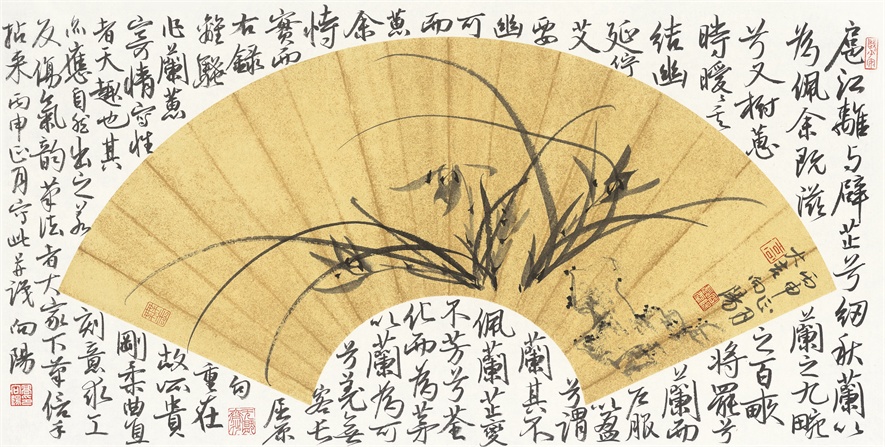 扈江離与辟芷兮紉秋蘭以
為佩余既滋蘭之九畹
兮又樹蕙之百畝
時曖〻其將罷兮
結幽蘭而
延佇戶服
艾以盈
要兮謂
幽蘭其不
可佩蘭芷變
而不芳兮荃
蕙化而為茅
余以蘭為可
恃兮羌無
實而容長
右錄屈原
離騷句
蘭蕙重在
寄情寫性故所貴
者天趣也其剛柔曲直
亦應自然出之若刻意求工
反傷氣韻筆法者大家下筆信手
拈来丙申正月寫此并識向陽
丙申正月
向陽